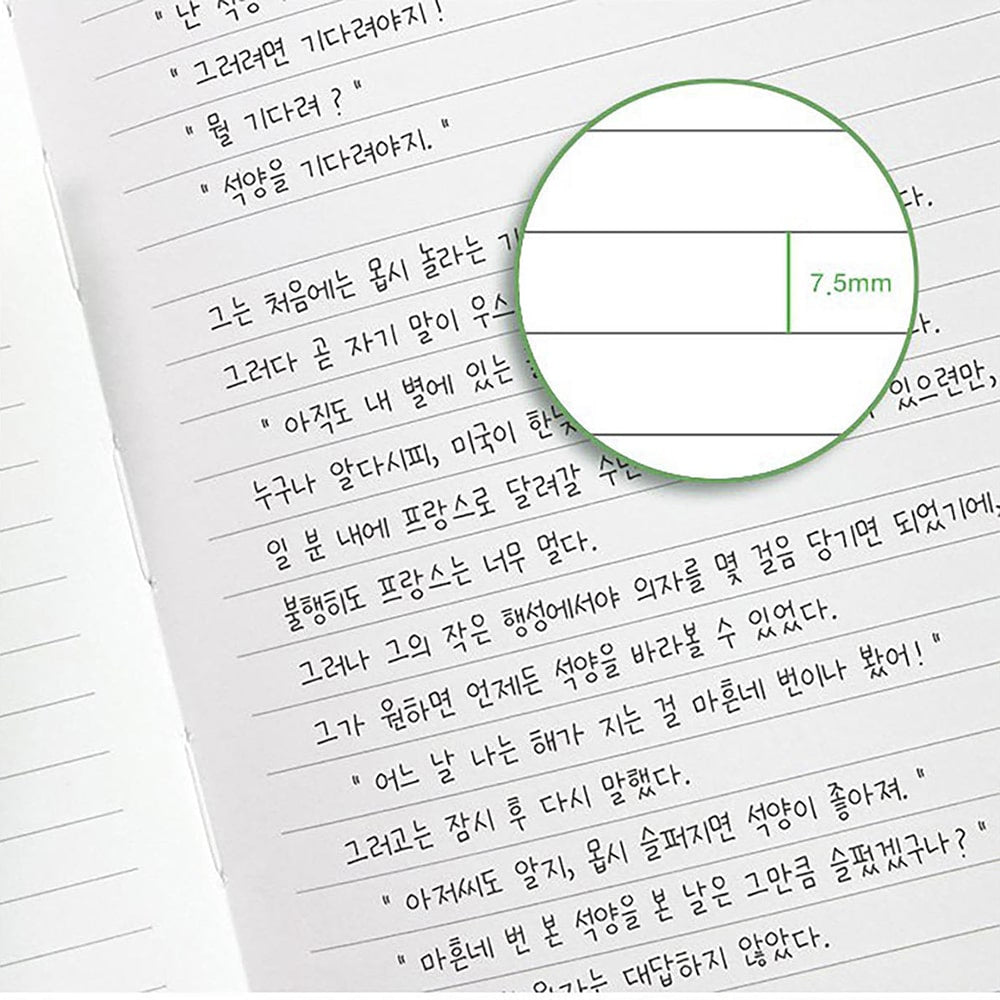 " 난 석양
" 그러려면 기다려야지!
" 뭘 기다려? "
" 석양을 기다려야지. "
그는 처음에는 몹시 놀라는 기
그러다 곧 자기 말이 우스
" 아직도 내 별에 있는
누구나 알다시피, 미국이 한 있으련만,
일 분 내에 프랑스로 달려갈 수만
불행히도 프랑스는 너무 멀다.
그러나 그의 작은 행성에서야 의자를 몇 걸음 당기면 되었기에,
그가 원하면 언제든 석양을 바라볼 수 있었다.
" 어느 날 나는 해가 지는 걸 마흔네 번이나 봤어! "
그러고는 잠시 후 다시 말했다.
" 아저씨도 알지, 몹시 슬퍼지면 석양이 좋아져. "
" 마흔네 번 본 석양을 본 날은 그만큼 슬펐겠구나? "
대답하지 않았다.
7.5mm